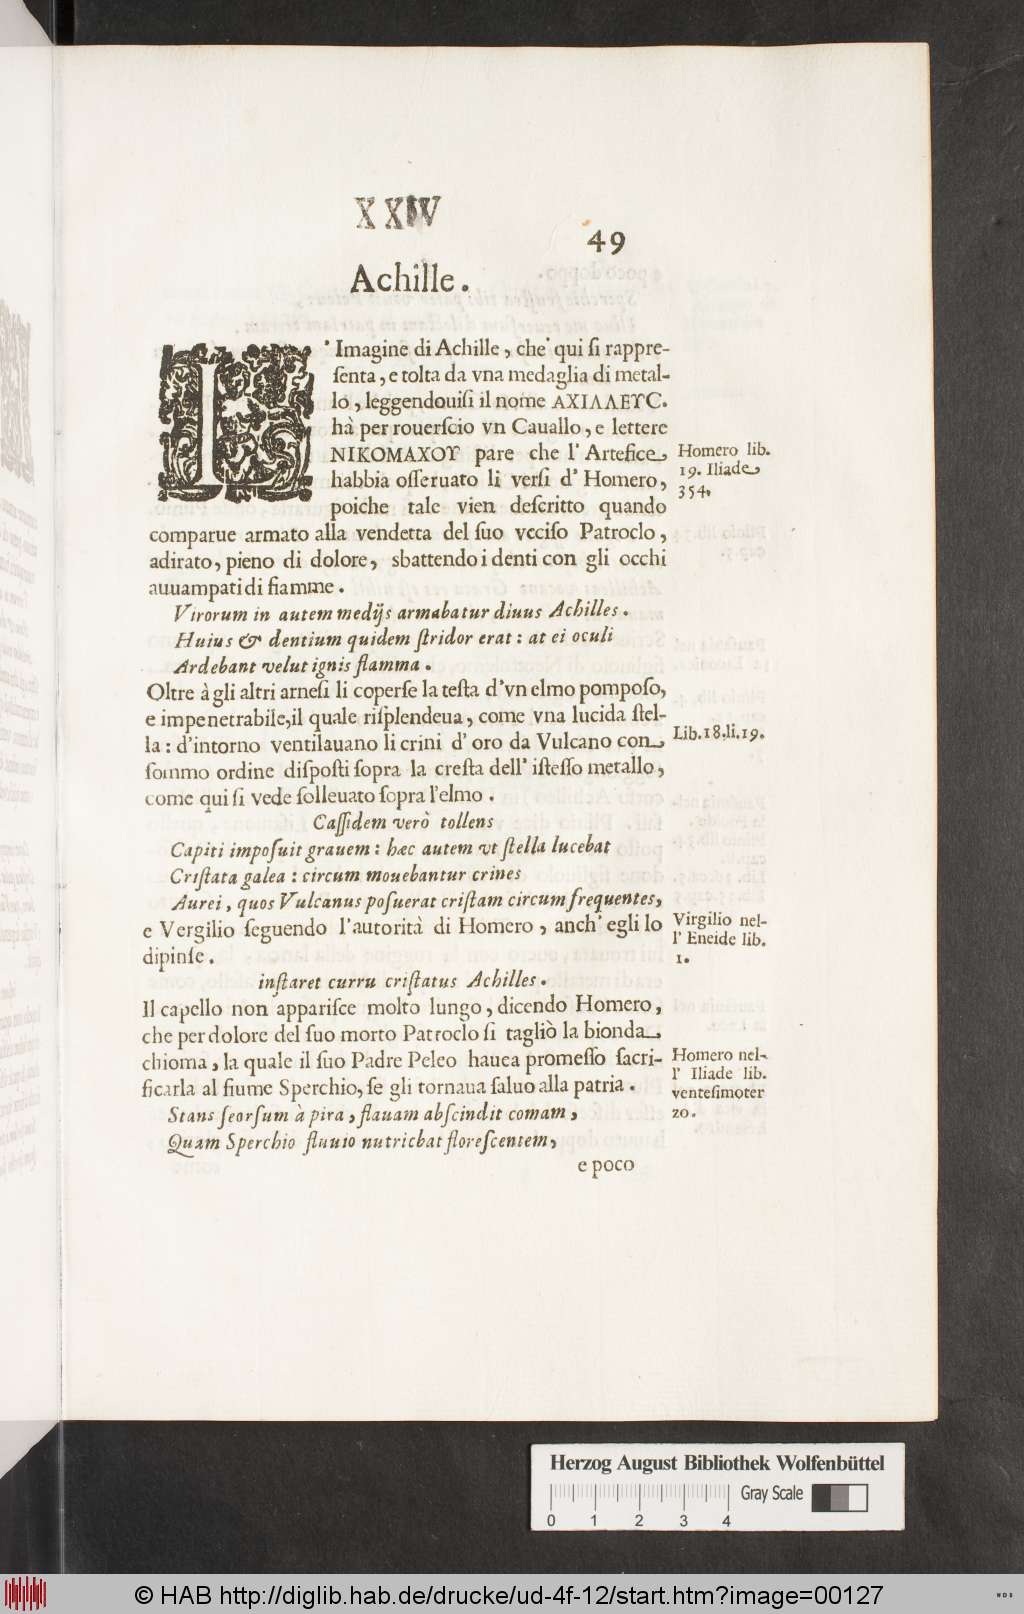 XXIV
49
Achille.
L'Imagine di Achille, che qui ſi rappre-
ſenta, e tolta da vna medaglia di metal-
lo, leggendouiſi il nome ΑΧΙΛΛΕΥC.
hà per rouerſcio vn Cauallo, e lettere
ΝΙΚΟΜΑΧΟΥ pare che l' Artefice
habbia oſſeruato li verſi d' Homero,
poiche tale vien deſcritto quando
comparue armato alla vendetta del ſuo vcciſo Patroclo,
adirato, pieno di dolore, sbattendo i denti con gli occhi
auuampati di fiamme.
Homero lib.
19. Iliade
354.
Virorum in autem medijs armabatur diuus Achilles.
Huius & dentium quidem ſtridor erat: at ei oculi
Ardebant velut ignis flamma.
Oltre à gli altri arneſi li coperſe la teſta d'vn elmo pompoſo,
e impenetrabile, il quale riſplendeua, come vna lucida ſtel-
la: d'intorno ventilauano li crini d' oro da Vulcano con
ſommo ordine diſpoſti ſopra la creſta dell' iſteſſo metallo,
come qui ſi vede ſolleuato ſopra l'elmo.
Lib. 18. li. 19.
Caſſidem verò tollens
Capiti impoſuit grauem: hæc autem vt ſtella lucebat
Criſtata galea: circum mouebantur crines
Aurei, quos Vulcanus poſuerat criſtam circum frequentes,
e Vergilio ſeguendo l'autorità di Homero, anch' egli lo
dipinſe.
Virgilio nel-
l' Eneide lib.
1.
inſtaret curru criſtatus Achilles.
Il capello non appariſce molto lungo, dicendo Homero,
che per dolore del ſuo morto Patroclo ſi tagliò la bionda
chioma, la quale il ſuo Padre Peleo hauea promeſſo ſacri-
ficarla al fiume Sperchio, ſe gli tornaua ſaluo alla patria.
Homero nel-
l' Iliade lib.
venteſimoter
20.
Stans ſeorſum à pira, flauam abſcindit comam,
Quam Sperchio fluuio nutriebat floreſcentem,
e poco
Herzog August Bibliothek Wolfenbüttel
Gray Scale
0 1 2 3 4
© HAB http://diglib.hab.de/drucke/ud-4f-12/start.htm?image=00127